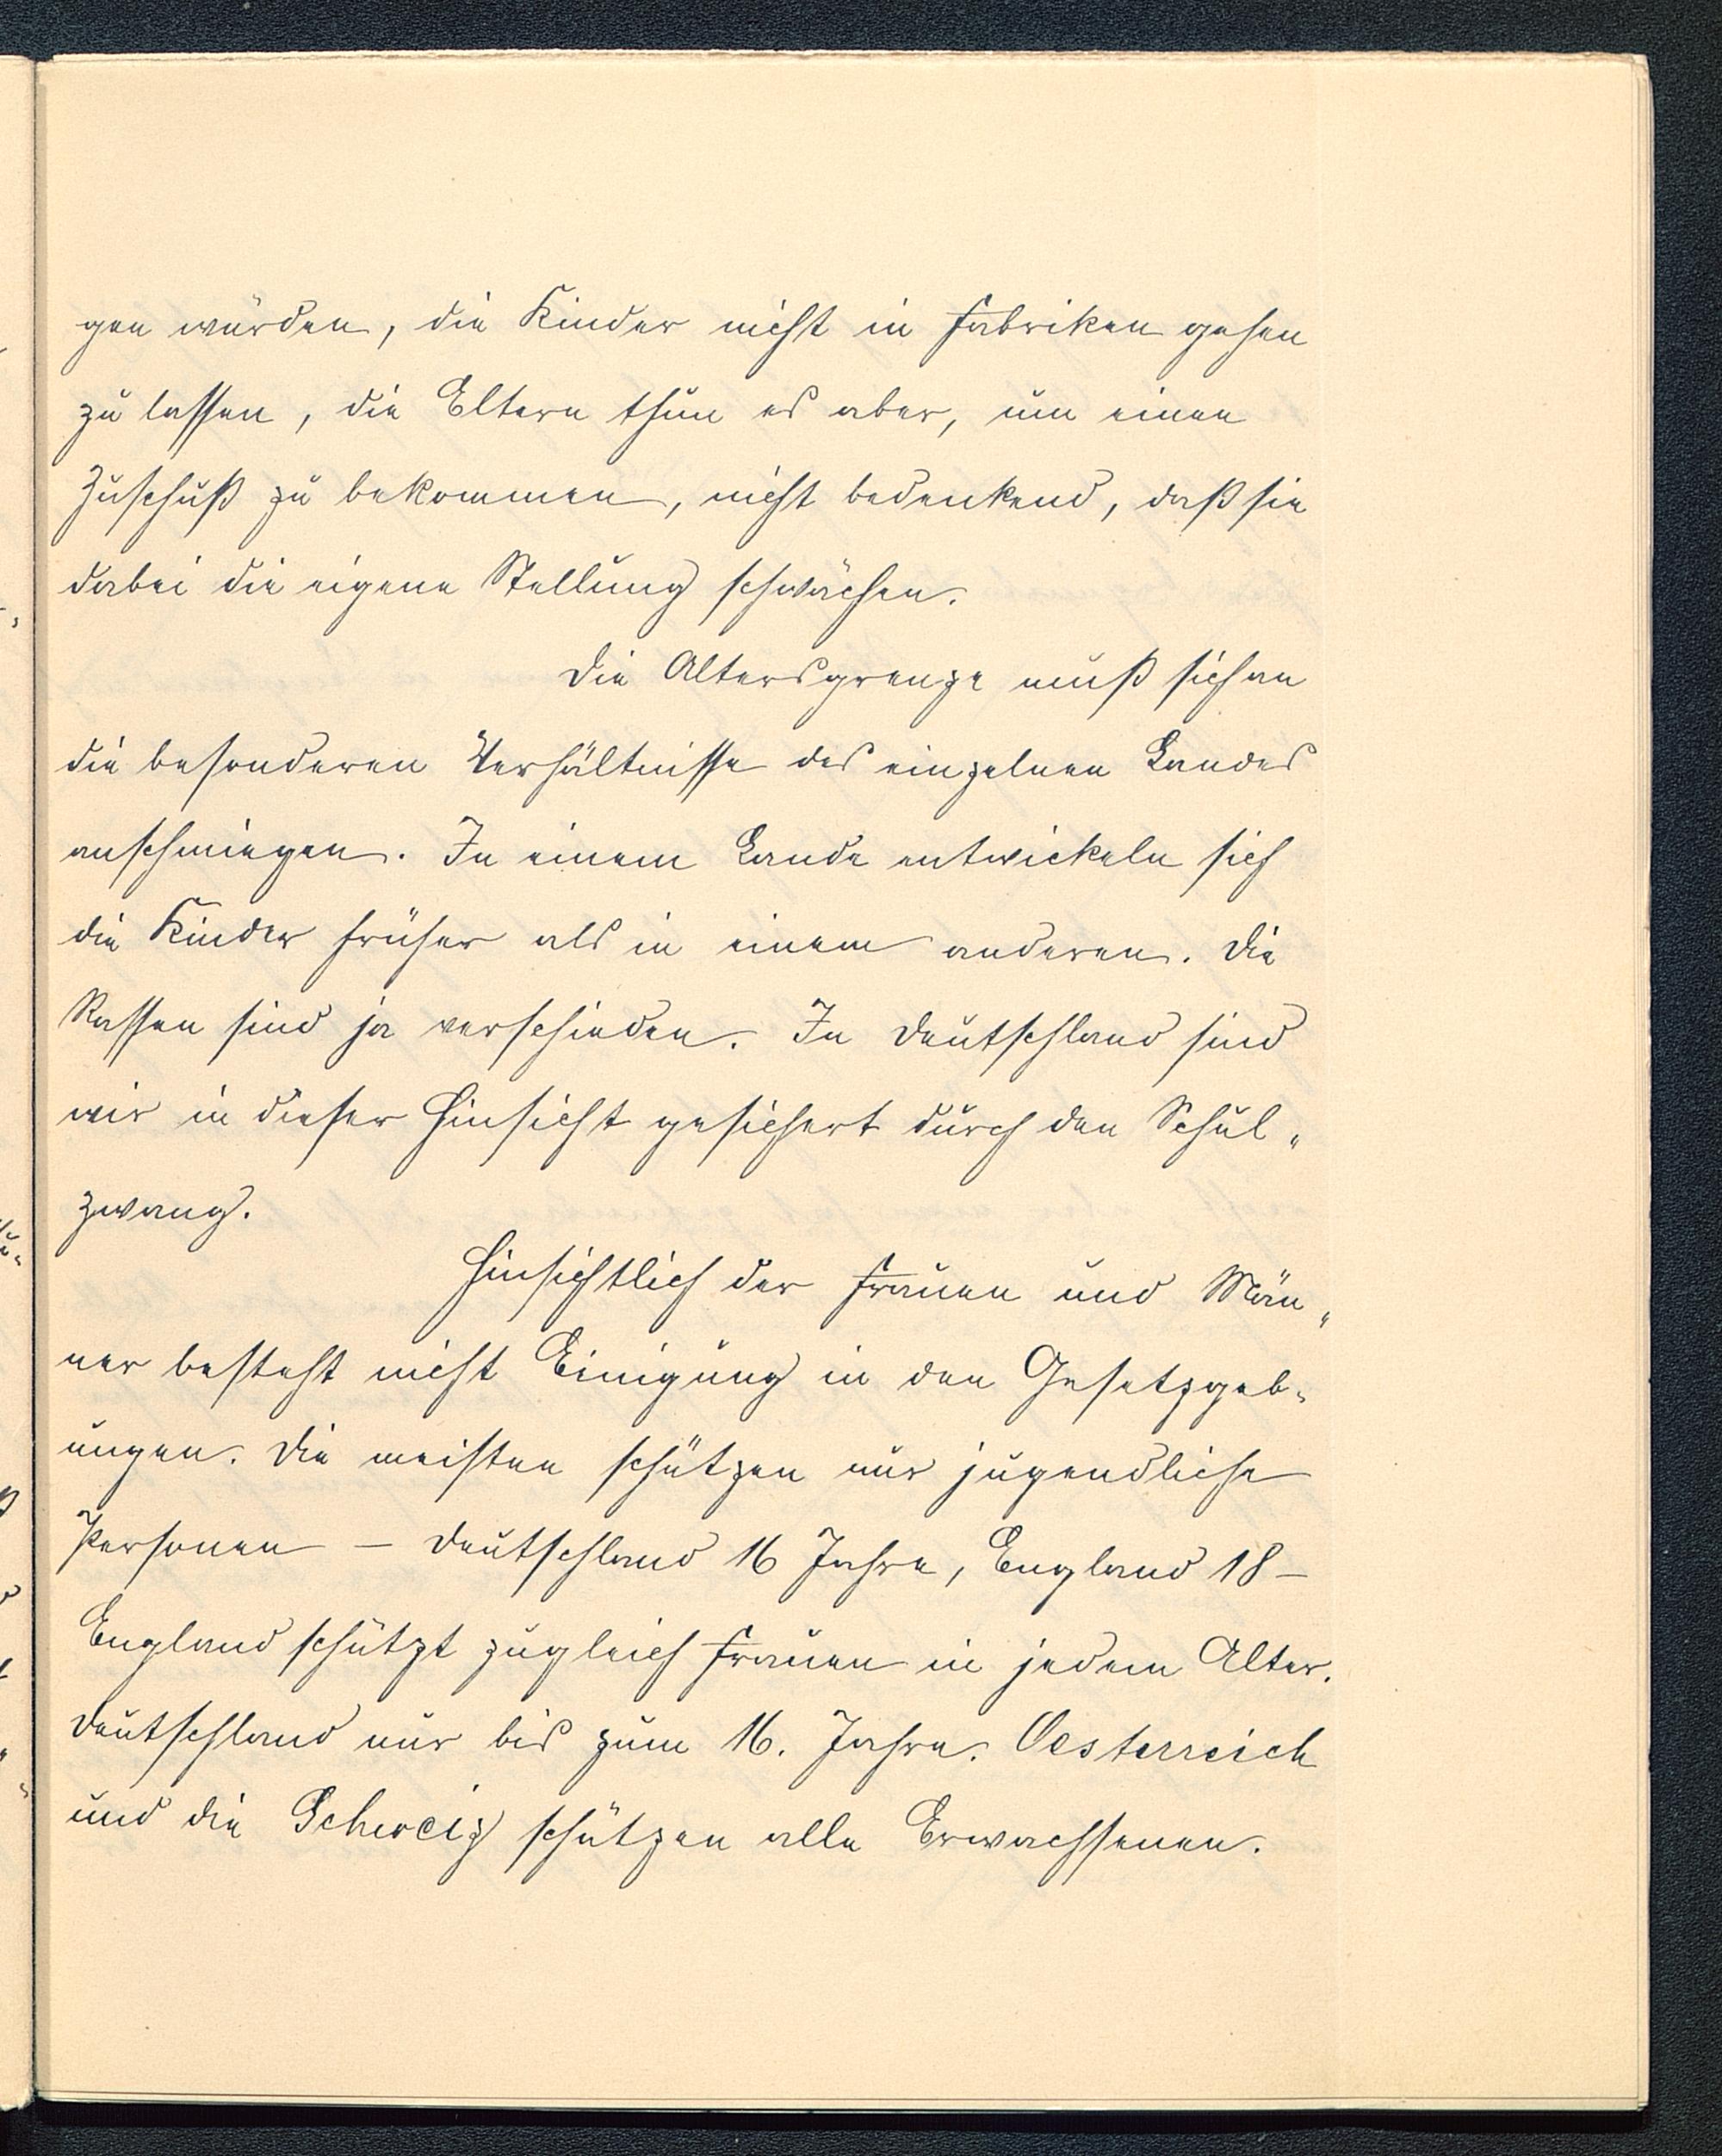 gen würden, die Kinder nicht in Fabriken gehen
zu lassen, die Eltern thun es aber, um einen
Zuschuß zu bekommen, nicht bedenkend, daß sie
dabei die eigene Stellung schwächen.
Die Altersgrenze muß sich an
die besonderen Verhältnisse des einzelnen Landes
anschmiegen. In einem Lande entwickeln sich
die Kinder früher als in einem anderen. Die
Rassen sind ja verschieden. In Deutschland sind
wir in dieser Hinsicht gesichert durch den Schul„
zwang.
Hinsichtlich der Frauen und Män„
ner besteht nicht Einigung in den Gesetzgeb„
ungen. Die meisten schützen nur jugendliche
Personen – Deutschland 16 Jahre, England 18 –
England schützt zugleich Frauen in jedem Alter.
Deutschland nur bis zum 16. Jahre. Oesterreich
und die Schweiz schützen alle Erwachsenen.